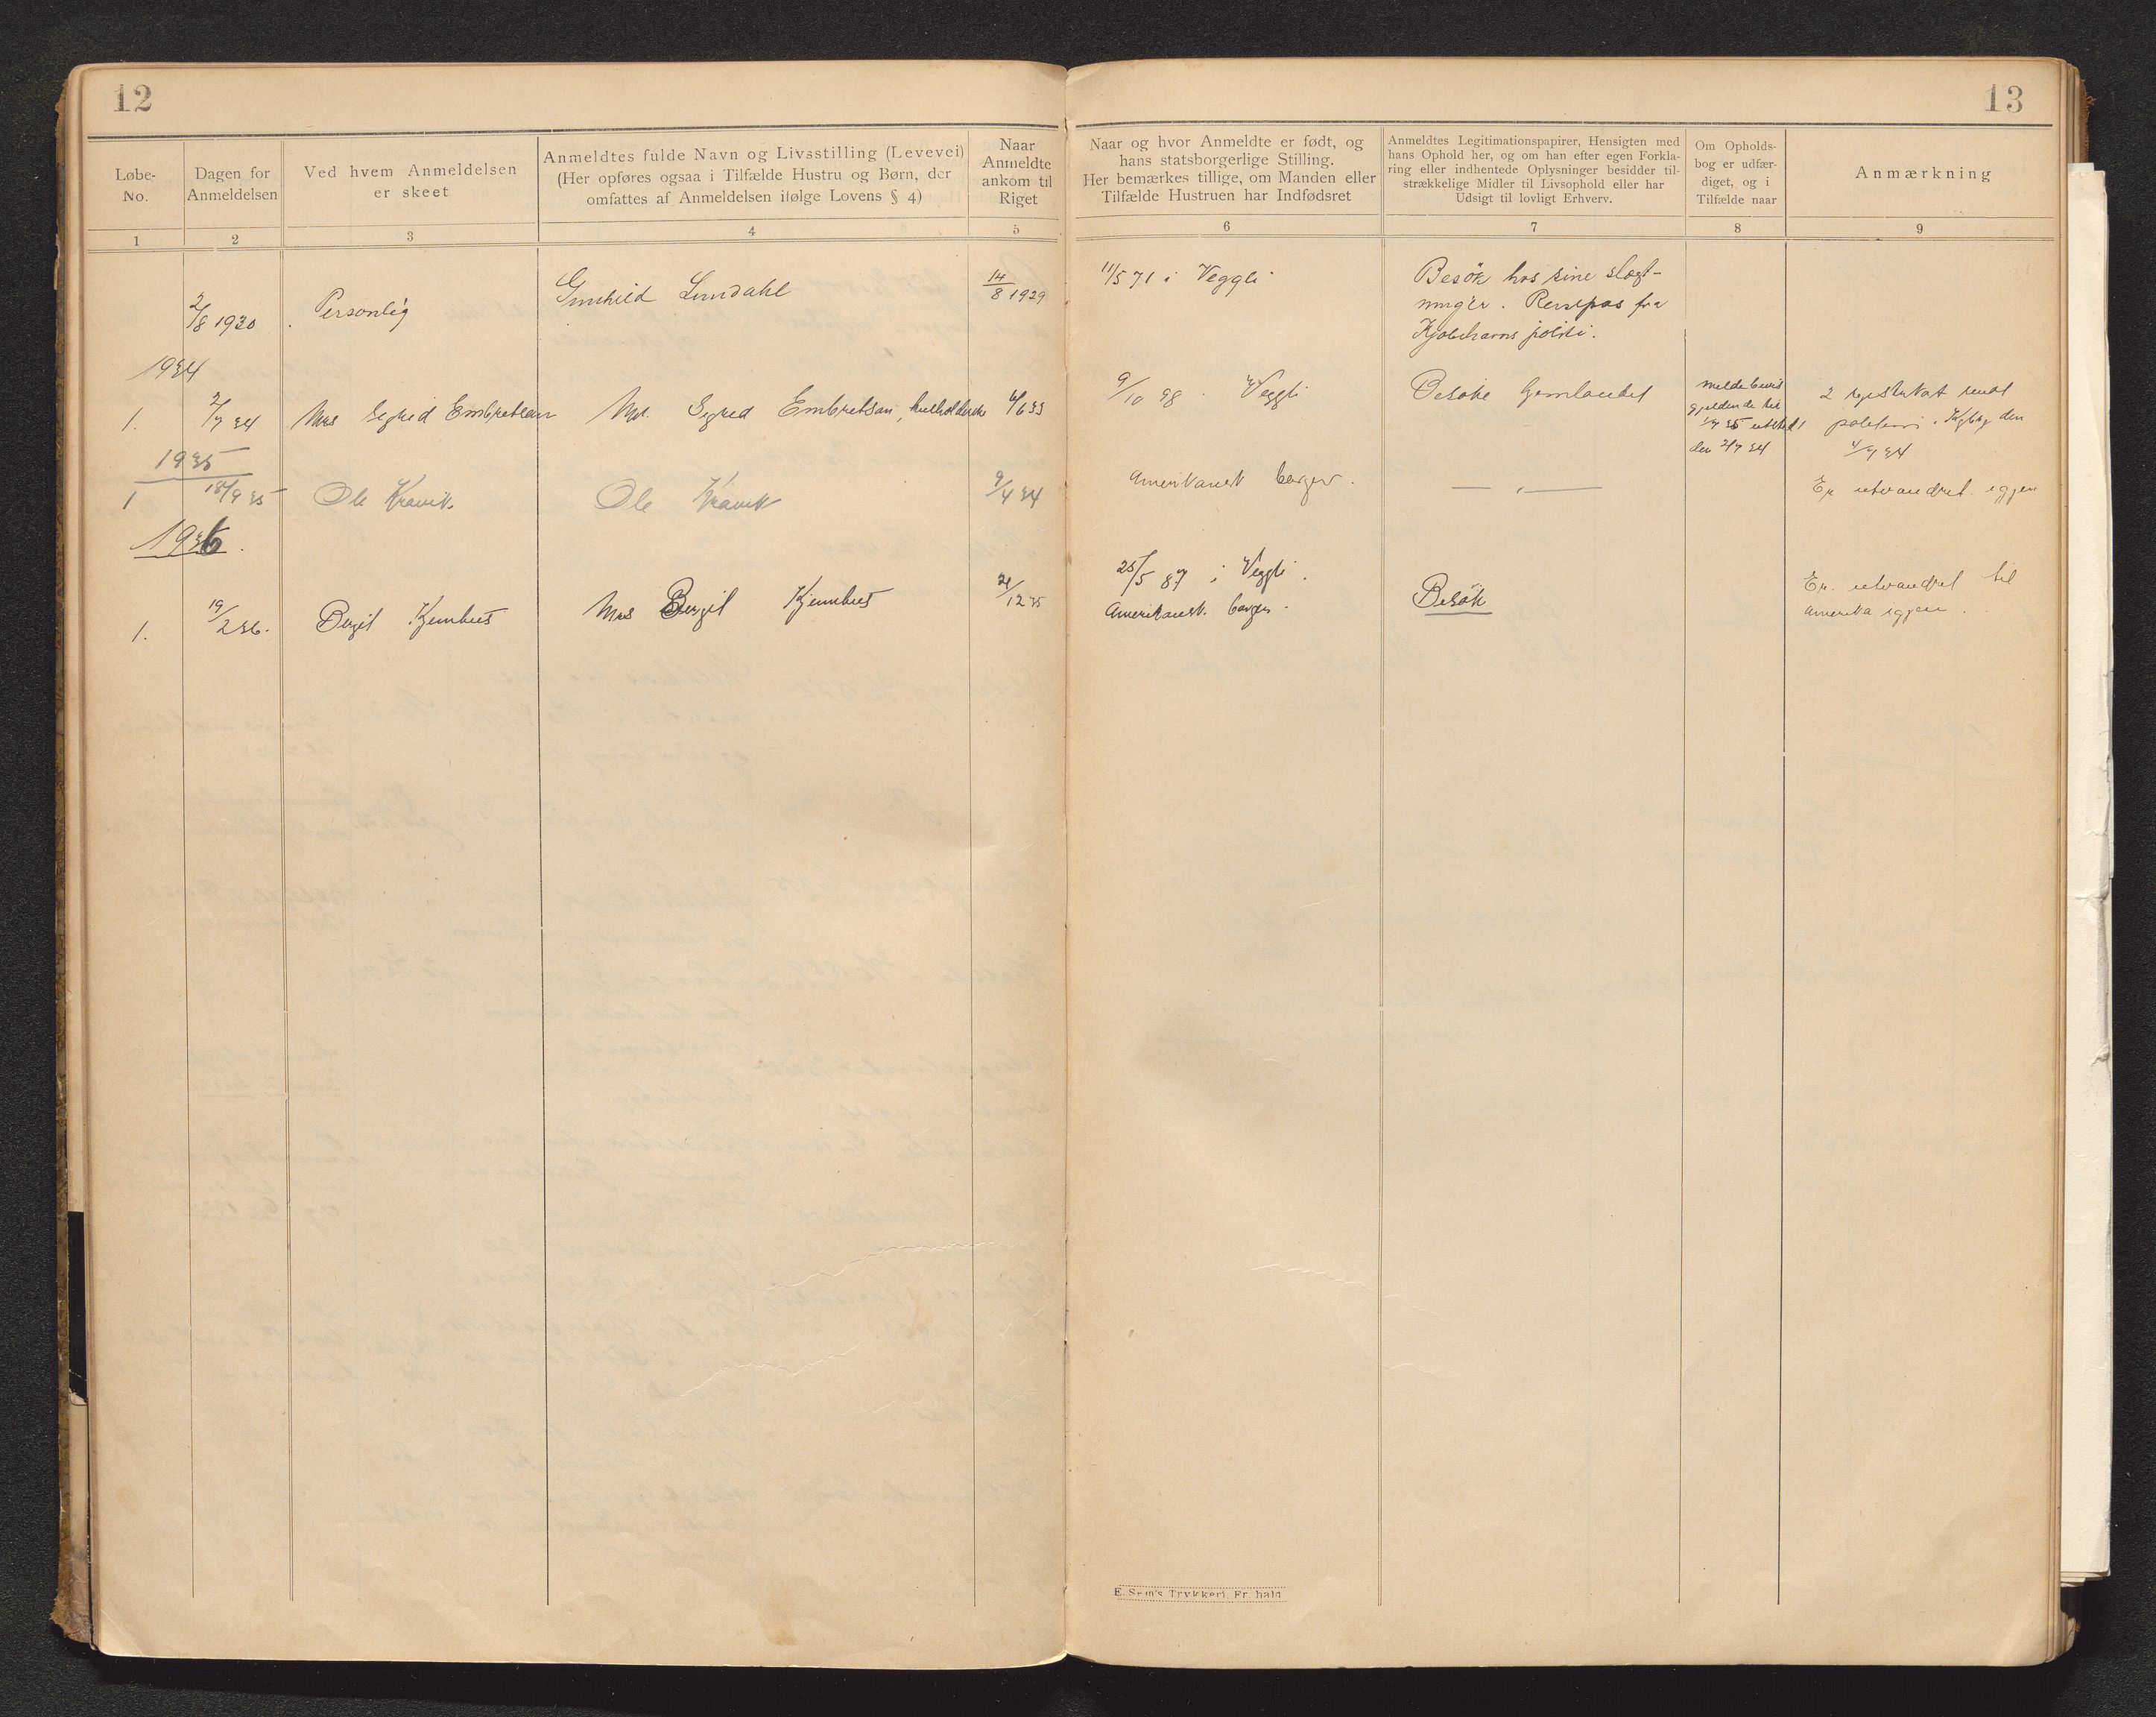 12
13
Løbe-
No.
Dagen for
Anmeldelsen
Ved hvem Anmeldelsen
er skeet
Anmeldtes fulde Navn og Livsstilling (Levevei)
(Her opføres ogsaa i Tilfælde Hustru og Børn, der
omfattes af Anmeldelsen ifølge Lovens § 4)
Naar
Anmeldte
ankom til
Riget
Naar og hvor Anmeldte er født, og
hans statsborgerlige Stilling.
Her bemærkes tillige, om Manden eller
Tilfælde Hustruen har Indfødsret
Anmeldtes Legitimationspapirer, Hensigten med
hans Ophold her, og om han efter egen Forkla-
ring eller indhentede Oplysninger besidder til-
strækkelige Midler til Livsophold eller har
Udsigt til lovligt Erhverv.
Om Opholds-
bog er udfær-
diget, og i
Tilfælde naar
Anmærkning
1
2
3
4
5
6
7
8
9
2/8 1930
Personlig
Gunhild Lundahl
14/8 1929
11/5 71 i Veggli
Besök hos sine slægt-
ninger. Reisepas fra
Kjøbehavns politi.
1934
1.
2/7 34
Mrs Sigrid Embretsen
Mrs. Sigrid Embretsen, husholderske
4/6 33
9/10 98. Veggli
Besøke hjemlandet
meldebevis
gjeldende til
den 2/7 34
2 den
4/7 34
1935
1
18/9 35
Ole Kravik.
Ole Kravik
9/4 34
Amerikansk borger.
— „ —
Er utvandret igjen
1936.
1.
19/2 36.
Birgit Kjemhus
Mrs Birgit Kjemhus
21/12 35
25/5 87 i Veggli.
Amerikansk. borger.
Besök
Er utvandret til
Amerika igjen.
E. Sem's Trykkeri, Fr.hald